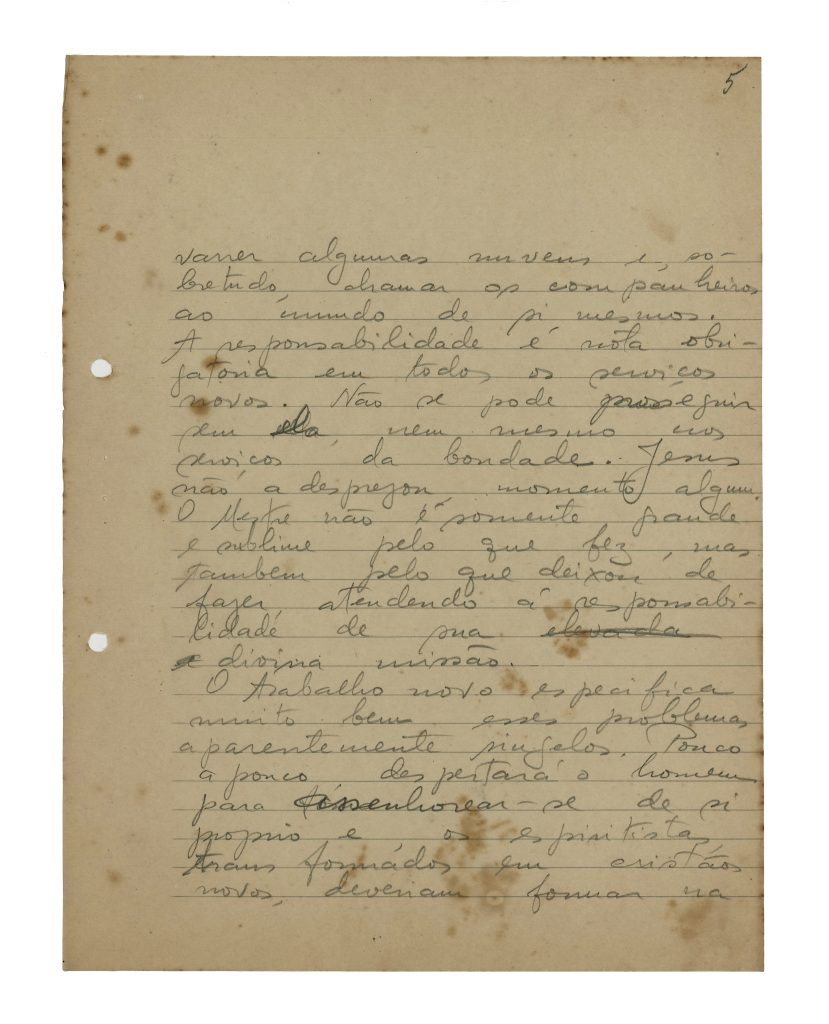 5
varrer algumas nuvens e, so-
bretudo, chamar os companheiros
ao mundo de si mesmos.
A responsabilidade é nota obri-
gatoria em todos os serviços
novos. Não se pode proseguir
sem ela, nem mesmo nos
serviços da bondade. Jesus
não a desprezou, momento algum.
O Mestre não é somente grande
e sublime pelo que fez, mas
tambem pelo que deixou de
fazer, atendendo á responsabi-
lidade de sua elevada
e divina missão.
O trabalho novo especifica
muito bem esses problemas
aparentemente singelos. Pouco
a pouco despertará o homem
para assenhorear-se de si
proprio e os espiritistas,
transformados em cristãos
novos, deveriam formar na